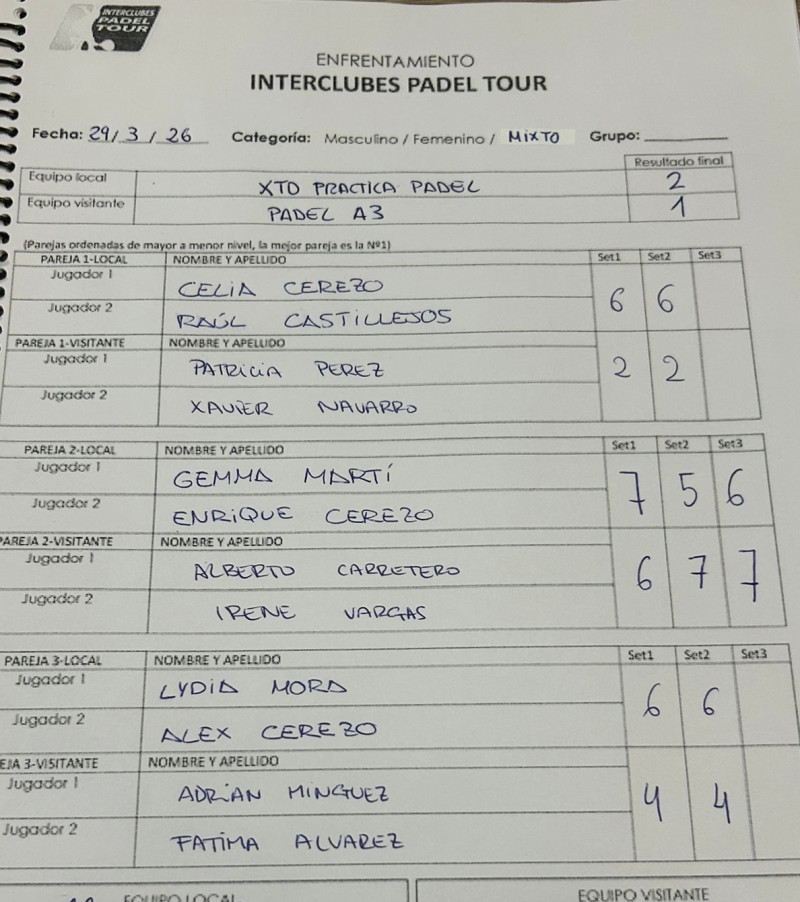 INTERCLUBES
PADEL
TOUR
ENFRENTAMIENTO
INTERCLUBES PADEL TOUR
Fecha: 29/3/26 Categoría: Masculino / Femenino / MIXTO Grupo:
Resultado final
Equipo local XTD PRACTICA PADEL 2
Equipo visitante PADEL A3 1
(Parejas ordenadas de mayor a menor nivel, la mejor pareja es la Nº1)
PAREJA 1-LOCAL NOMBRE Y APELLIDO Set1 Set2 Set3
Jugador 1 CELIA CEREZO
6 6
Jugador 2 RAÚL CASTILLEJOS
PAREJA 1-VISITANTE NOMBRE Y APELLIDO
Jugador 1 PATRICIA PEREZ
2 2
Jugador 2 XAVIER NAVARRO
PAREJA 2-LOCAL NOMBRE Y APELLIDO Set1 Set2 Set3
Jugador 1 GEMMA MARTÍ
7 5 6
Jugador 2 ENRIQUE CEREZO
PAREJA 2-VISITANTE NOMBRE Y APELLIDO
Jugador 1 ALBERTO CARRETERO
6 7 7
Jugador 2 IRENE VARGAS
PAREJA 3-LOCAL NOMBRE Y APELLIDO Set1 Set2 Set3
Jugador 1 LYDIA MORA
6 6
Jugador 2 ALEX CEREZO
EJA 3-VISITANTE NOMBRE Y APELLIDO
Jugador 1 ADRIAN MINGUEZ
4 4
Jugador 2 FATIMA ALVAREZ
EQUIPO LOCAL EQUIPO VISITANTE